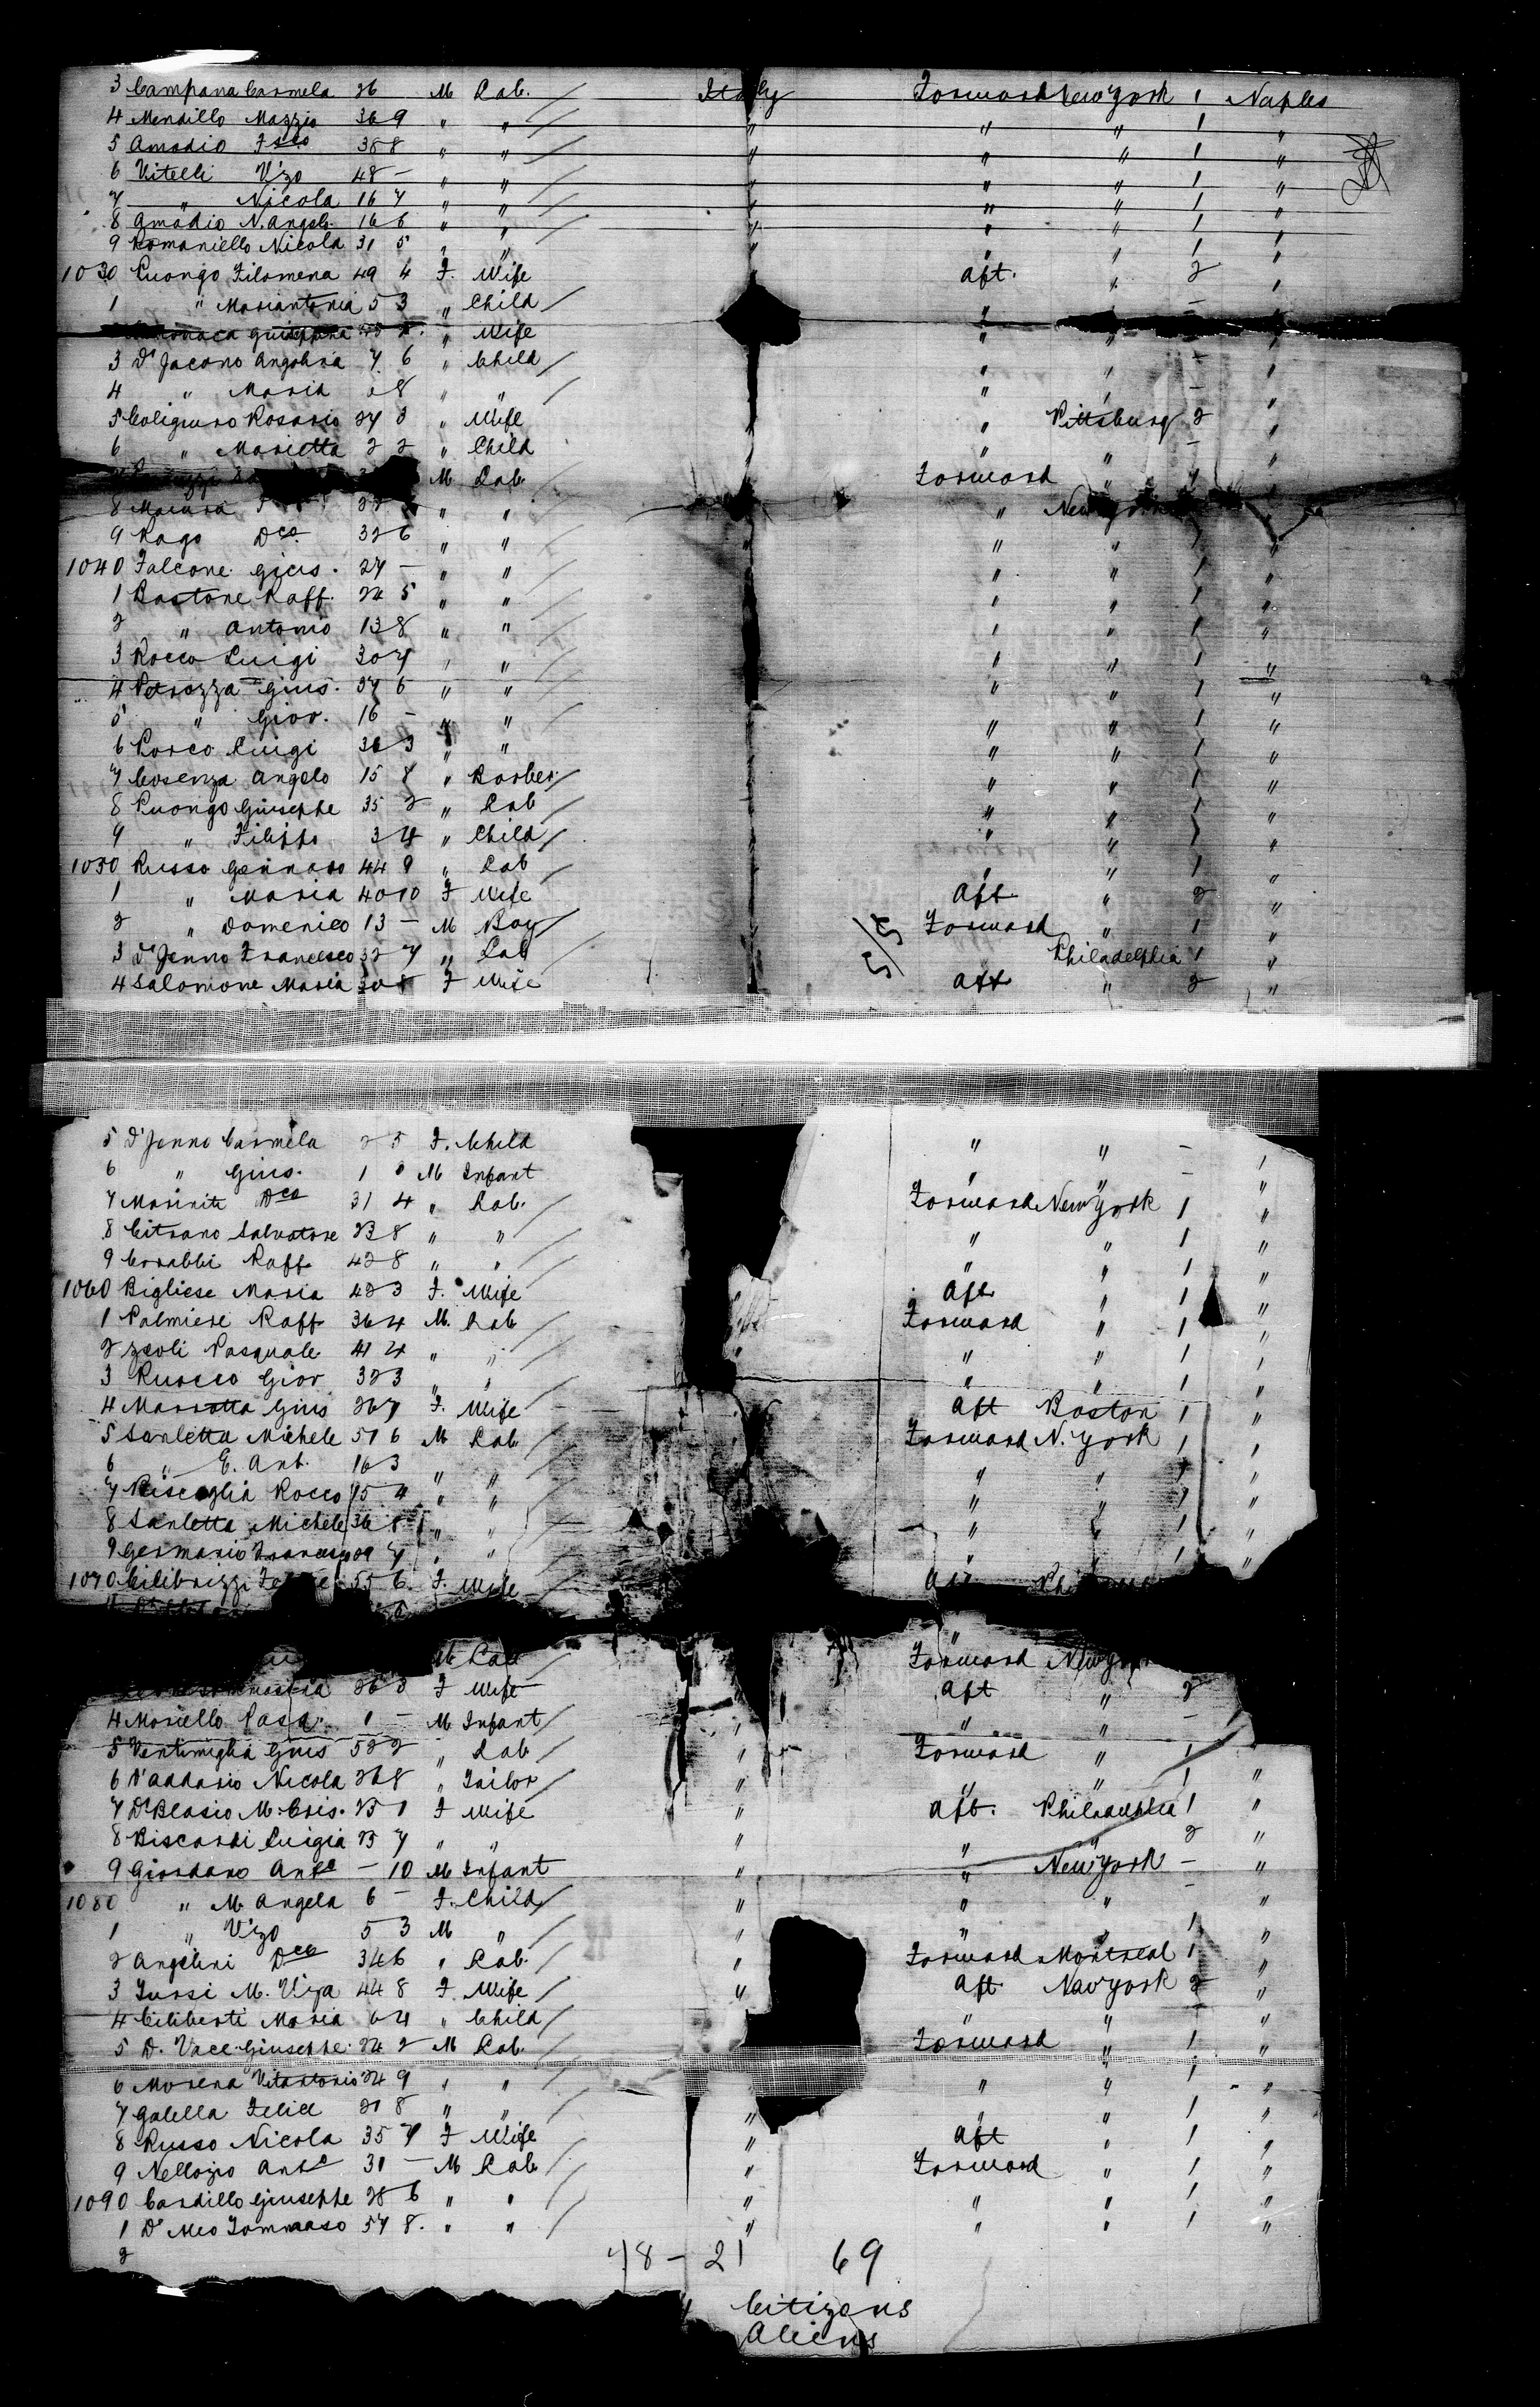 3 Campana Carmela 26 M Lab. Italy Forward New York 1 Naples
4 Mendillo Mazzio 36 9 " " " " " 1 "
5 Amodio Fsco 38 8 " " " " " 1 "
6 Vitelli V'zo 48 - " " " " " 1 "
7 " Nicola 16 7 " " " " " 1 "
8 Amodio N. Angelo 16 6 " " " " " 1 "
9 Romaniello Nicola 31 5 " " " " " 1 "
1030 Luongo Filomena 49 4 F. Wife Aft. " 2 "
1 " Mariantonia 5 3 " Child " " - "
Giuseppina " Wife " "
3 D'Jacono Angelina 7 6 " Child " " - "
4 " Maria 8 " " " " - "
5 Coligiuro Rosario 27 3 " Wife " Pittsburg 2 "
6 " Marietta 2 2 " Child " " - "
M Lab. Forward " 1 "
8 " " " New York
9 Rago Dco 32 6 " " " " 1 "
1040 Falcone Gius. 27 - " " " " 1 "
1 Bastone Raff. 24 5 " " " " 1 "
2 " Antonio 13 8 " " " " 1 "
3 Rocco Luigi 30 7 " " " " 1 "
4 Petrozza Gius. 37 5 " " " " 1 "
5 " Giov. 16 - " " " " 1 "
6 Porco Luigi 36 3 " " " " 1 "
7 Cosenza Angelo 15 8 " Barber " " 1 "
8 Luongo Giuseppe 35 2 " Lab " " 1 "
9 " Filippo 3 4 " Child " " 1 "
1050 Russo Gennaro 44 9 " Lab " " 1 "
1 " Maria 40 10 F Wife Aft " 2 "
2 " Domenico 13 - M Boy 5/5 Forward " 1 "
3 D'Jenno Francesco 32 7 " Lab Philadelphia 1 "
4 Salomone Maria 30 8 F Wife Aft " 2 "
5 D'Jenno Carmela 2 5 F. Child " " - "
6 " Gius. 1 M Infant " " - "
7 Mariniti Dco 31 4 " Lab. Forward New York 1 "
8 Citrano Salvatore 23 8 " " " " 1 "
9 Corabbi Raff. 42 8 " " " " 1 "
1060 Bigliese Maria 42 3 F. Wife Aft " 1 "
1 Palmiere Raff 36 4 M. Lab Forward " 1 "
2 Zeoli Pasquale 41 4 " " " " 1 "
3 Ruocco Giov 32 3 " " " " 1 "
4 Marrotta Gius 26 7 F. Wife Aft Boston 1 "
5 Sarletta Michele 51 6 M Lab. Forward N. York 1 "
6 " E. Ant. 16 3 " " " " 1 "
7 Bisceglia Rocco 15 4 " " " " 1 "
8 Sarletta Michele 36 8 " " " " 1 "
9 Germario Francesco 29 7 " " " 1 "
1070 Cilibrizzi 55 6 F. Wife
M Lab Forward New York
26 3 F Wife Aft " 2
4 Moriello Pasq. 1 - M Infant " " " -
5 Ventimiglia Gius 52 2 " Lab " Forward " 1
6 D'Addario Nicola 26 8 " Tailor " " " 1 "
7 Di Blasio M. Cris. 23 1 F Wife " Aft. Philadelphia 1 "
8 Biscardi Luigia 23 7 " " " " " 2 "
9 Giordano Anto - 10 M Infant " " New York - "
1080 " M. Angela 6 - F. Child " " " - "
1 " V'zo 5 3 M " " " " 1 "
2 Angelini Dco 34 6 " Lab. " Forward Montreal 1 "
3 Iussi M. Viza 44 8 F. Wife " Aft New York 2 "
4 Ciliberti Maria 4 " Child " " "
5 D. Vace Giuseppe 24 2 M Lab. Forward " 1 "
6 Morena Vitantonio 24 9 " " " " 1 "
7 Galella Felice 21 8 " " " " " 1 "
8 Russo Nicola 35 7 F Wife " Aft " 1 "
9 Nellozio Anto 31 - M Lab " Forward " 1 "
1090 Cardillo Giuseppe 28 6 " " " " " 1 "
1 Di Meo Tommaso 57 8. " " " " " 1 "
2
48 - 21 69
Citizens
Aliens